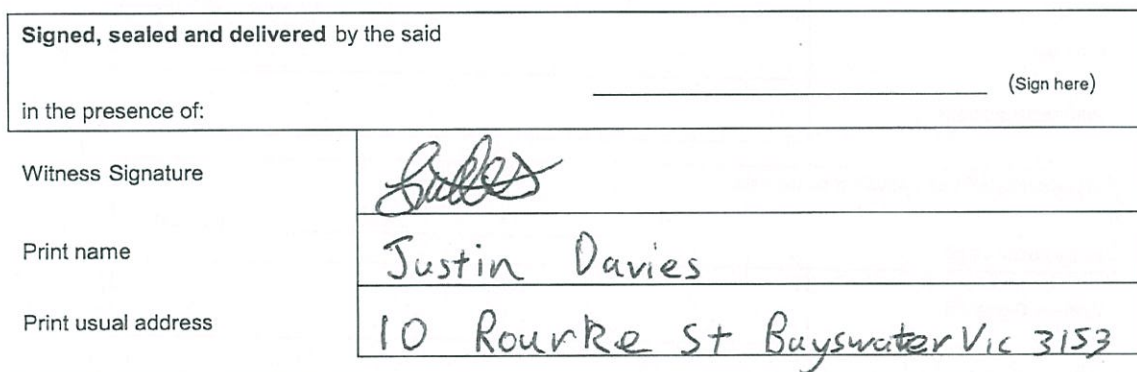 Signed, sealed and delivered by the said
(Sign here)
in the presence of:
Witness Signature
Print name Justin Davies
Print usual address 10 Rourke St Bayswater Vic 3153